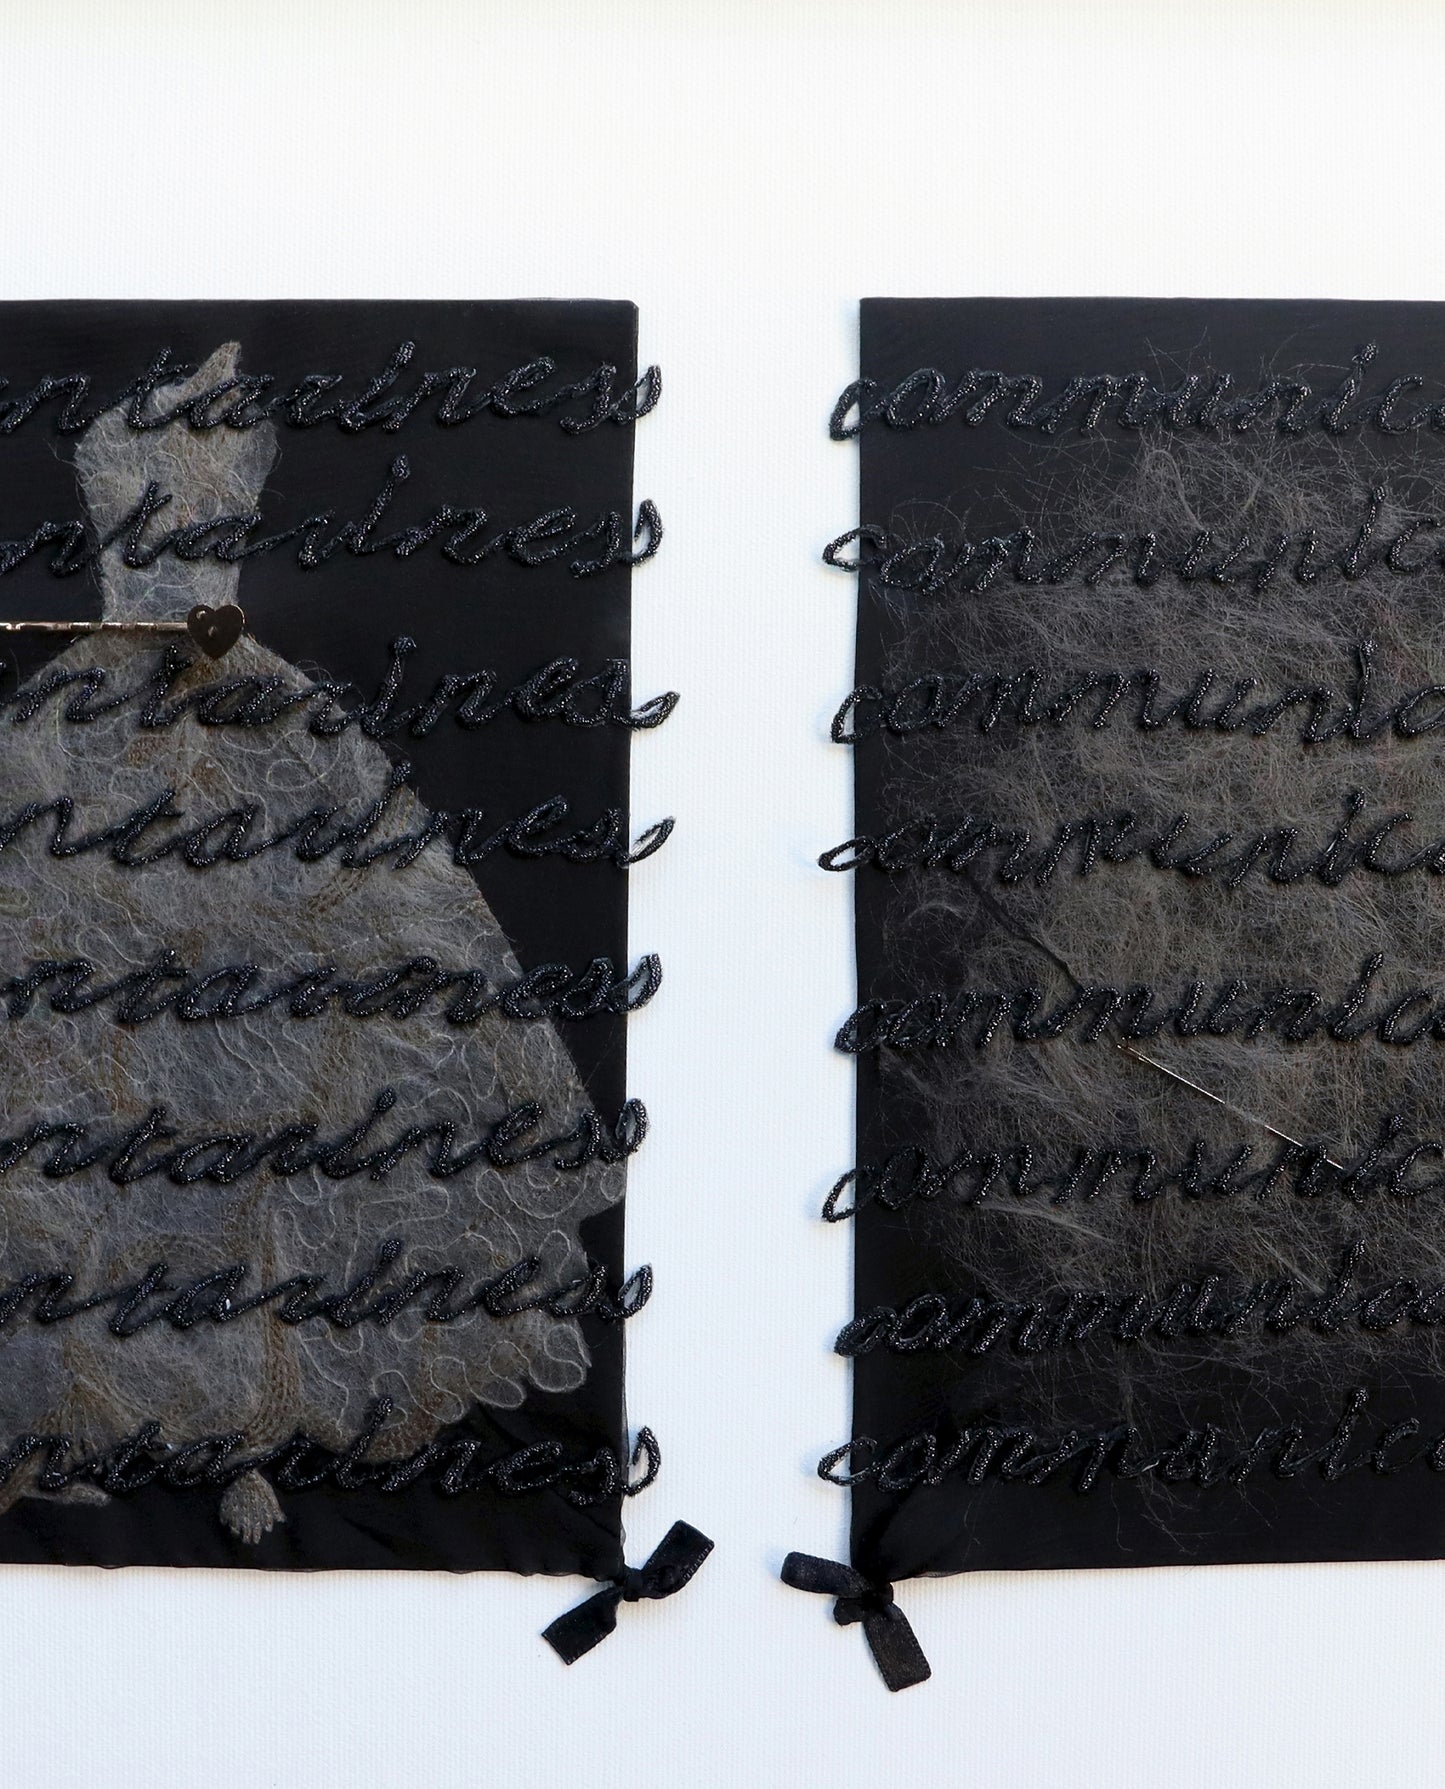 ntariness
ntariness
ntariness
ntariness
ntariness
ntariness
ntariness
ntariness
communic
communic
communic
communic
communic
communic
communic
communic